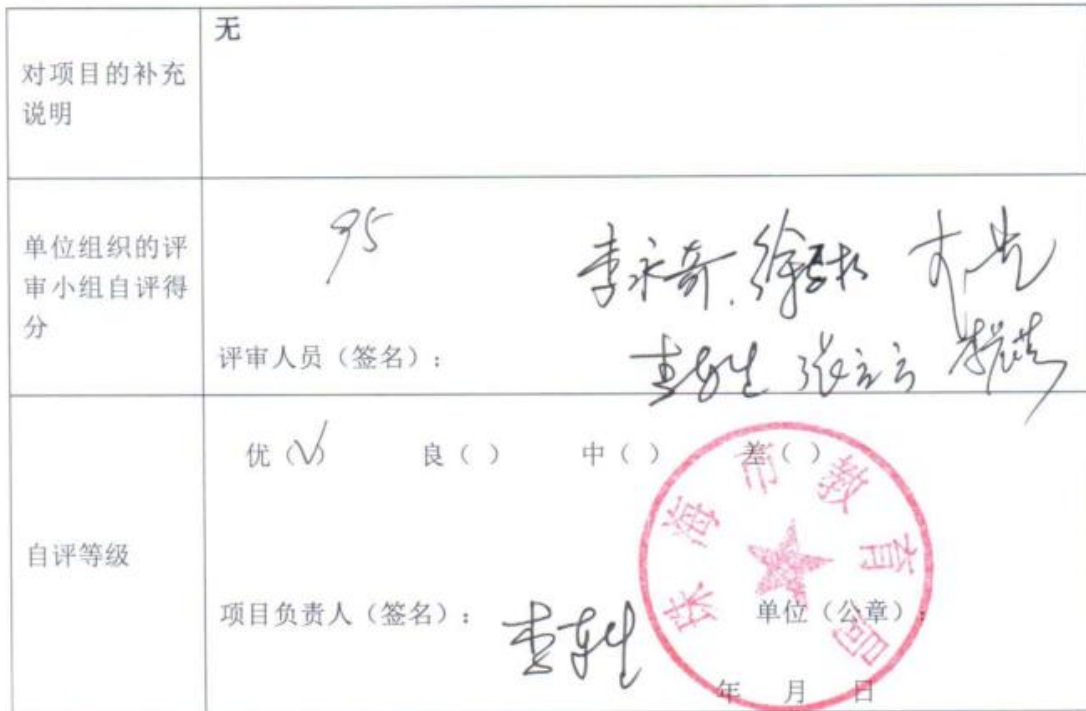 无
对项目的补充
说明
单位组织的评
审小组自评得
分
95
李永奇
评审人员（签名）：
张立云
自评等级
优（√） 良（ ） 中（ ） 差（ ）
项目负责人（签名）：
单位（公章）：
年 月 日
珠海市教育局